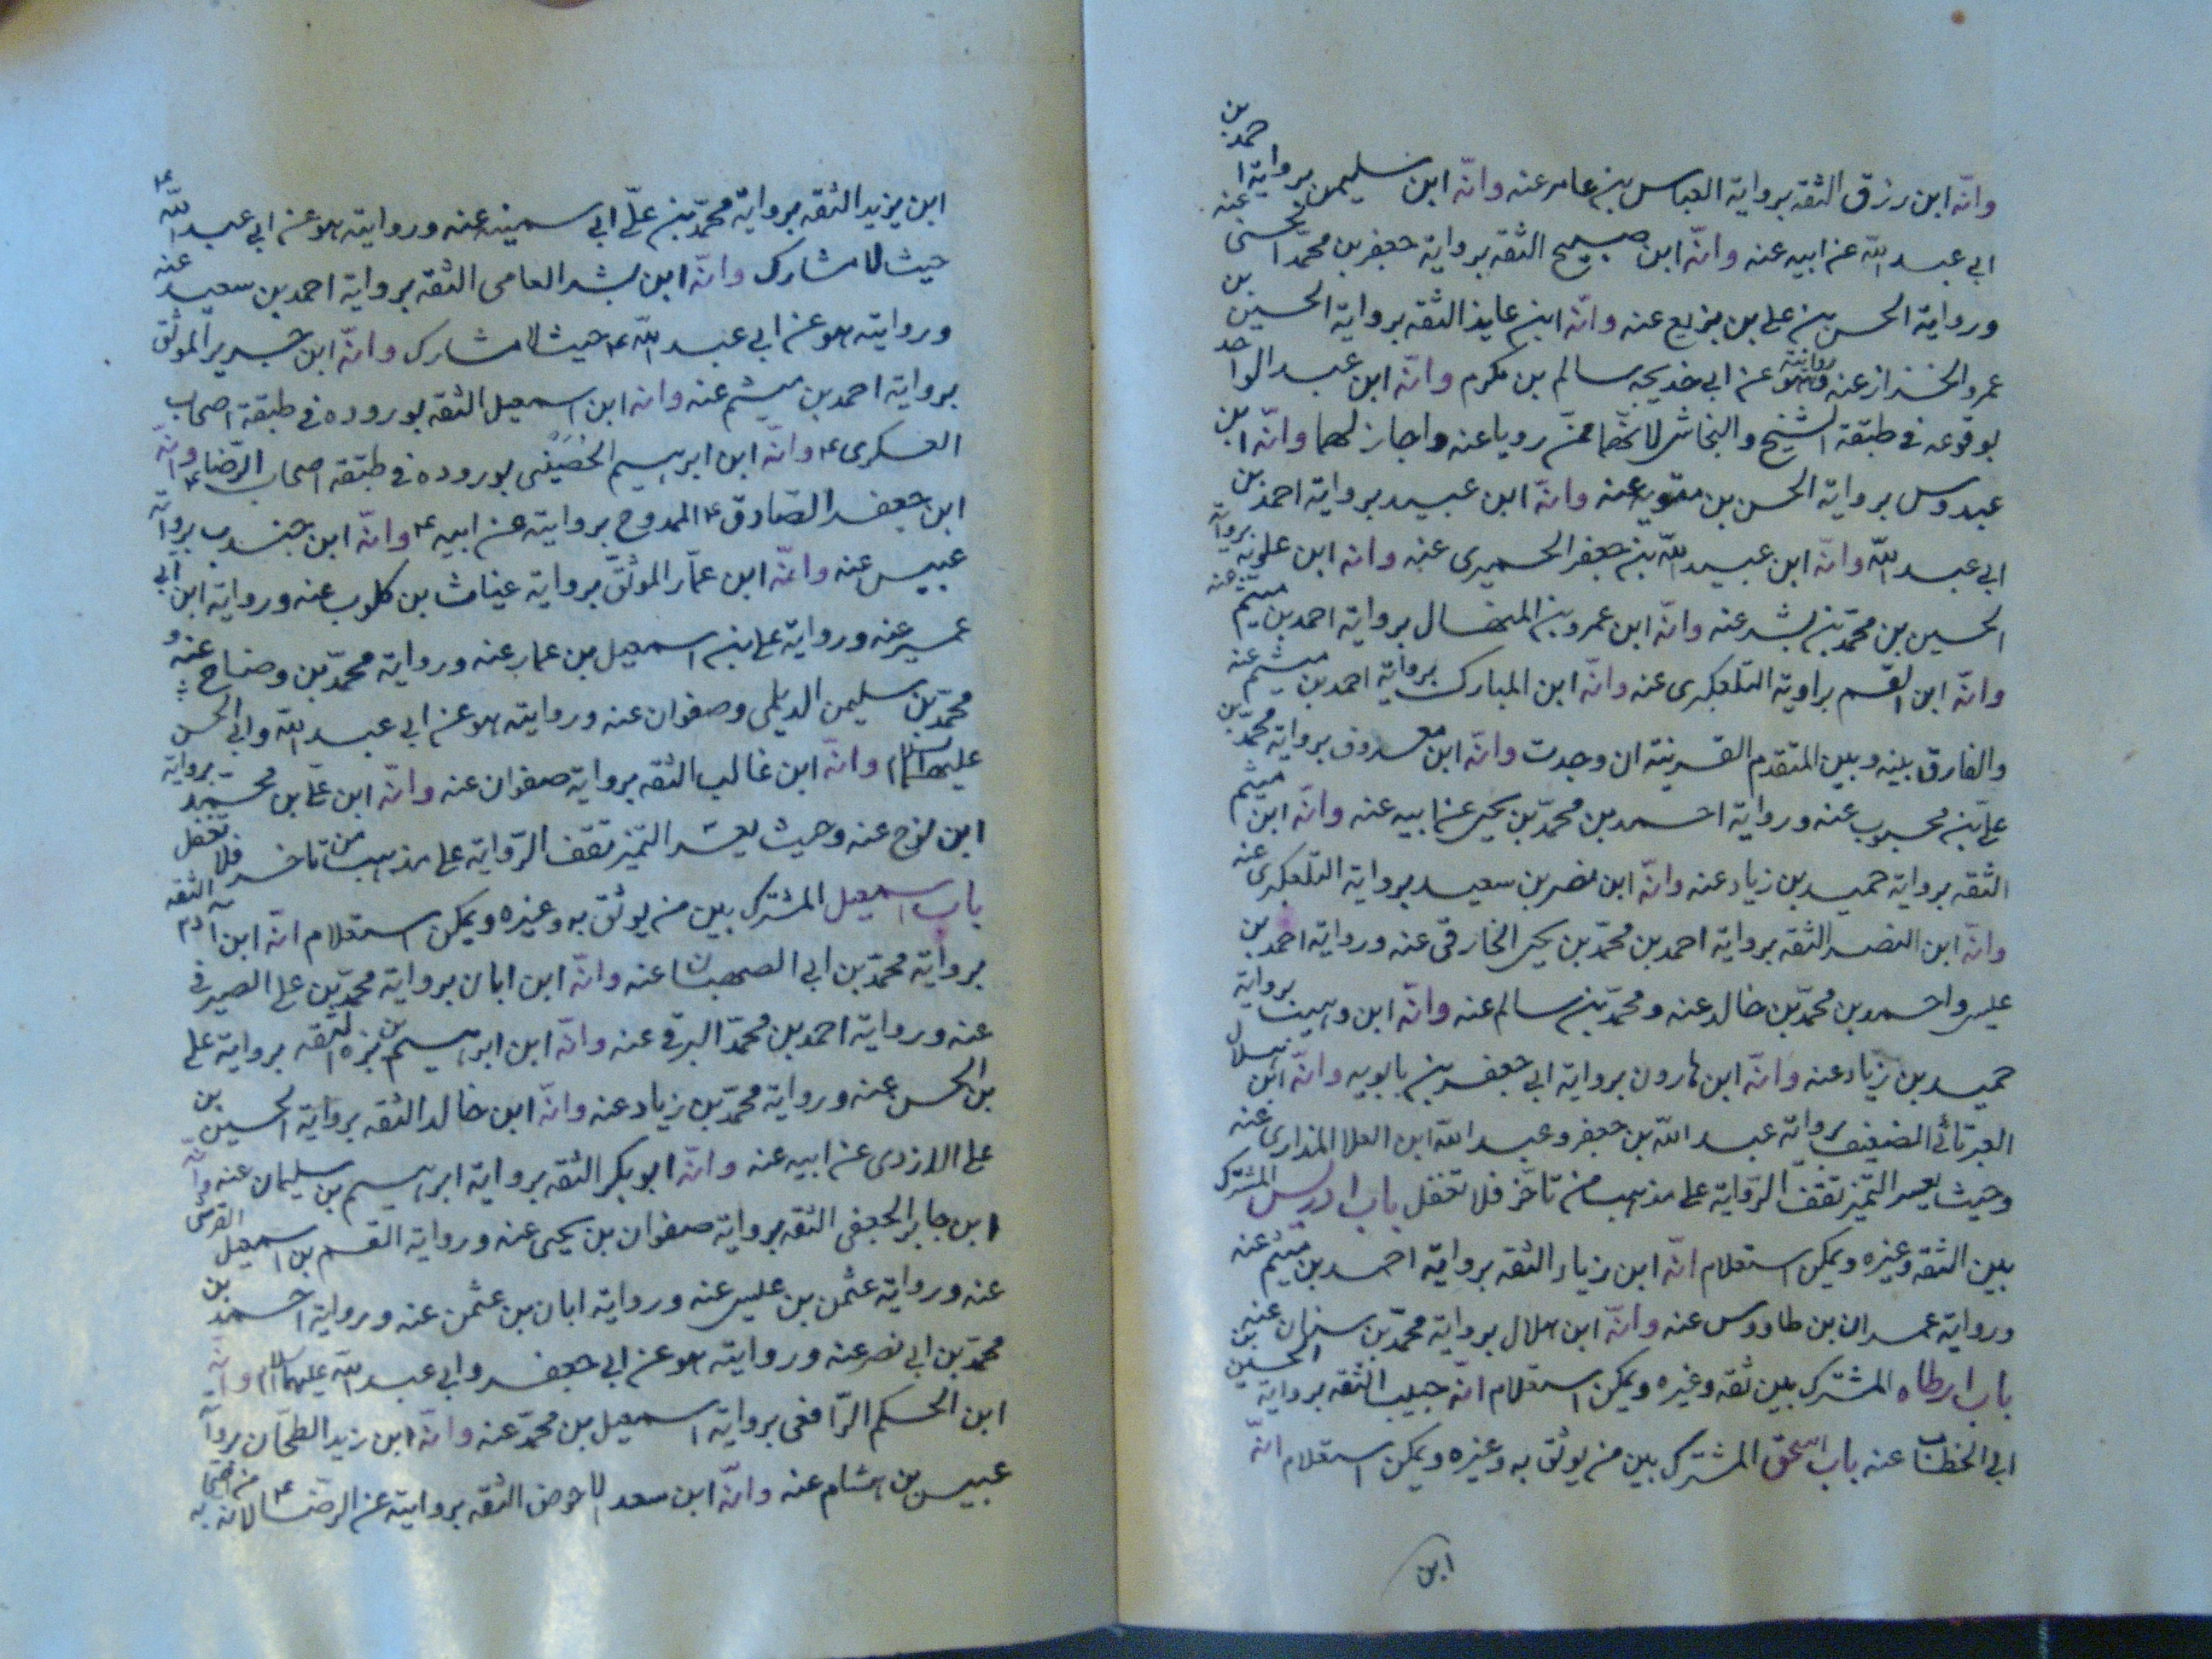 وانّه ابن رزق الثقه برواية العباس بن عامر عنه وانّه ابن سليمن برواية احمد بن
ابي عبد الله عن ابيه عنه وانّه ابن صبيح الثقه برواية جعفر بن محمّد الحسنى عنه
ورواية الحسن بن على بن بزيع عنه وانّه ابن عايذ الثقه برواية الحسين بن
عمرو الخزاز عنه وروايته هو عن ابى خديجه سالم بن مكرم وانّه ابن عبد الواحد
بوقوعه فى طبقة الشيخ والنجاشى لانّهما ممّن رويا عنه واجاز لهما وانّه ابن
عبدوس برواية الحسن بن متويه عنه وانّه ابن عبيد برواية احمد بن
ابي عبد الله وانّه ابن عبيد الله بن جعفر الحميرى عنه وانه ابن علويه برواية
الحسين بن محمّد بن بشر عنه وانّه ابن عمرو بن المنهال برواية احمد بن ميثم عنه
وانّه ابن القسم براوية التلعكبرى عنه وانّه ابن المبارك برواية احمد بن ميثم عنه
والفارق بينه وبين المتقدم القرينة ان وجدت وانّه ابن معروف برواية محمّد بن
على بن محبوب عنه ورواية احمد بن محمّد بن يحيى عن ابيه عنه وانّه ابن ميثم
الثقه برواية حميد بن زياد عنه وانّه ابن نصر بن سعيد برواية التلعكبرى عنه
وانّه ابن النضر الثقه برواية احمد بن محمّد بن يحيى الخازقى عنه ورواية احمد بن
عليى واحمد بن محمّد بن خالد عنه ومحمّد بن سالم عنه وانّه ابن وهيب برواية
حميد بن زياد عنه وانّه ابن هارون برواية ابي جعفر بن بابويه وانّه ابن هلال
العبرتائى الضعيف برواية عبد الله بن جعفر وعبد الله ابن العلا المذارى عنه
وحيث يعسر التميز تقف الرّواية على مذهب من تاخّر فلا تغفل باب ادريس المشترك
بين الثقه وغيره ويمكن استعلام انّه ابن زياد الثقه برواية احمد بن ميثم عنه
ورواية عمران بن طاووس عنه وانّه ابن هلال برواية محمّد بن سنان عنه
باب ارطاه المشترك بين ثقه وغيره ويمكن استعلام انّه حبيب الثقه برواية الحسين بن
ابي الخطاب عنه باب اسحق المشترك بين من يوثق به وغيره ويمكن استعلام انّه
ابن
ابن يزيد الثقه برواية محمّد بن علّى ابى سمينه عنه وروايته هو عن ابي عبد الله ع
حيث لا مشارك وانّه ابن بشر العامى الثقه برواية احمد بن سعيد عنه
وروايته هو عن ابي عبد الله ع حيث لا مشارك وانّه ابن جرير الموثق
برواية احمد بن ميثم عنه وانه ابن اسمعيل الثقه بوروده فى طبقة اصحاب
العسكرى ع وانّه ابن ابرهيم الحُضَينى بوروده فى طبقة اصحاب الرّضاء ع وانّه
ابن جعفر الصّادق ع الممدوح بروايته عن ابيه ع وانّه ابن جندب برواية
عبيس عنه وانّه ابن عمّار الموثق برواية غياث بن كلوب عنه ورواية ابن ابي
عمير عنه ورواية على بن اسمعيل بن عمار عنه ورواية محمّد بن وضاح عنه و
محمّد بن سليمن الديلمى وصفوان عنه وروايته هو عن ابي عبد الله وابي الحسن
عليهما السلام وانّه ابن غالب الثقه برواية صفوان عنه وانّه ابن على بن محمّد برواية
ابن نوح عنه وحيث يعسر التميز تقف الرّواية على مذهب من تاخر فلا تغفل
باب اسمعيل المشترك بين من يوثق به وغيره ويمكن استعلام انّه ابن آدم الثقه
برواية محمّد بن ابي الصهبان عنه وانّه ابن ابان برواية محمّد بن على الصيرفى
عنه ورواية احمد بن محمّد البرقى عنه وانّه ابن ابرهيم بن بزه الثقه برواية على
بن الحسن عنه ورواية محمّد بن زياد عنه وانّه ابن خالد الثقه برواية الحسين بن
على الازدى عن ابيه عنه وانّه ابو بكر الثقه برواية ابرهيم بن سليمان عنه وانّه
ابن جابر الجعفى الثقه برواية صفوان بن يحيى عنه ورواية القسم بن اسمعيل القرشى
عنه ورواية عثمن بن عليى عنه ورواية ابان بن عثمن عنه ورواية احمد بن
محمّد بن ابي نصر عنه وروايته هو عن ابي جعفر وابي عبد الله عليهما السلام وانّه
ابن الحكم الرّافعى برواية اسمعيل بن محمّد عنه وانّه ابن زيد الطحّان برواية
عبيس بن هشام عنه وانّه ابن سعد الاحوص الثقه بروايته عن الرضا ع لانه من اصحابه